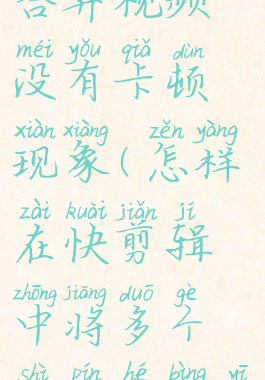 合并视频
méi yǒu qiǎ dùn
没有卡顿
xiàn xiàng zěn yàng
现象(怎样
zài kuài jiǎn jí
在快剪辑
zhōng jiāng duō gè
中将多个
shì pín hé bìng yī